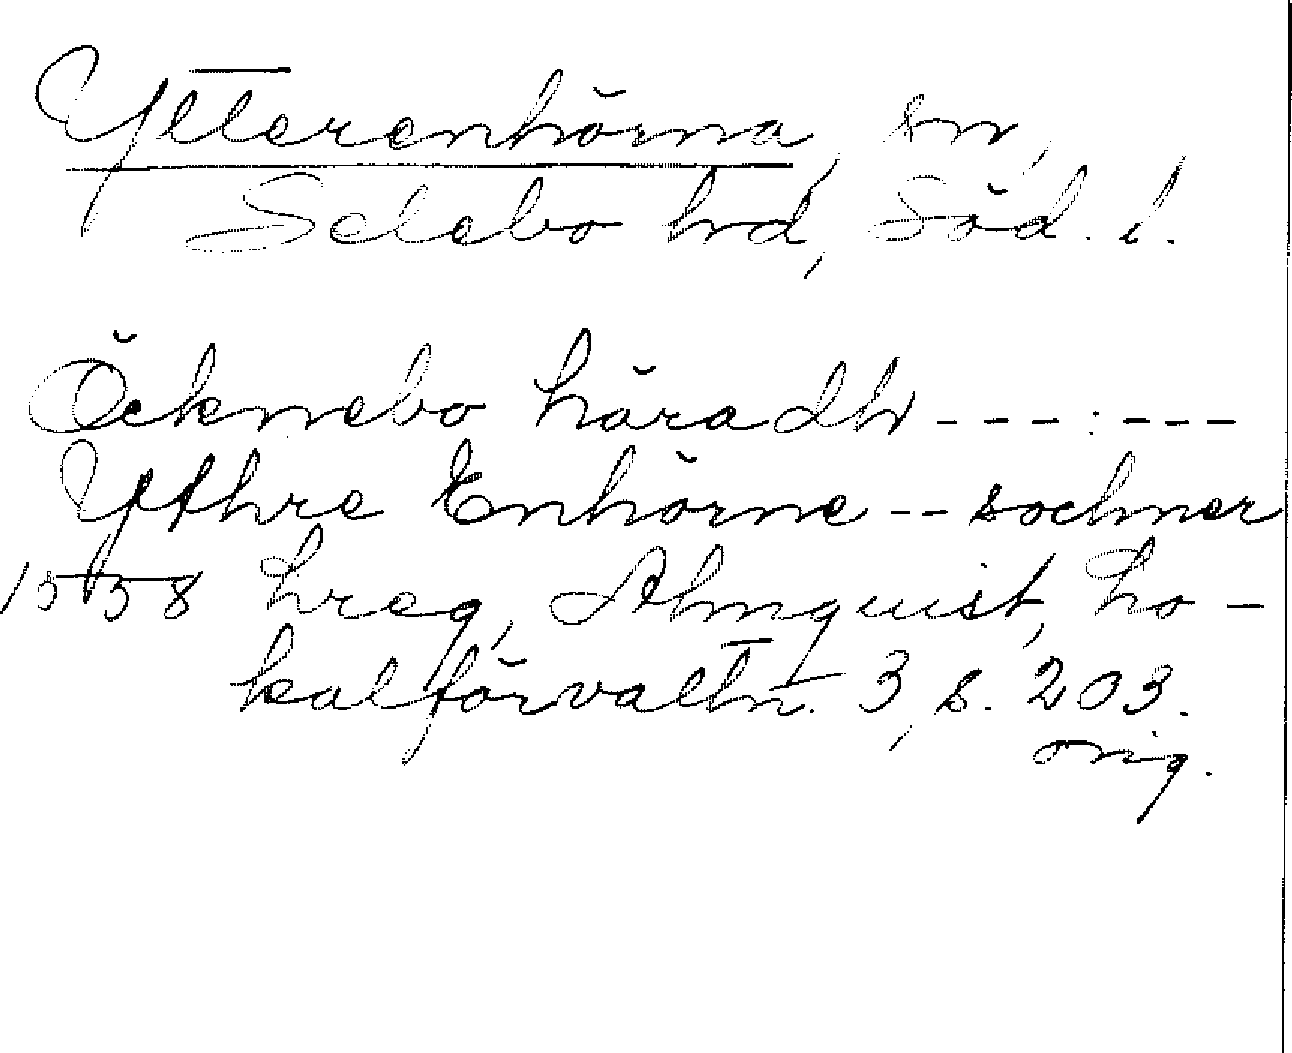 Ytterenhörna, sn,
Selebo hd, Söd. l.
Öcknebo häradh ---:---
Ythre Enhörne -- sochner
1558 hreg, Almquist, Lo-
kalförvaltn. 3, s. 203.
orig.